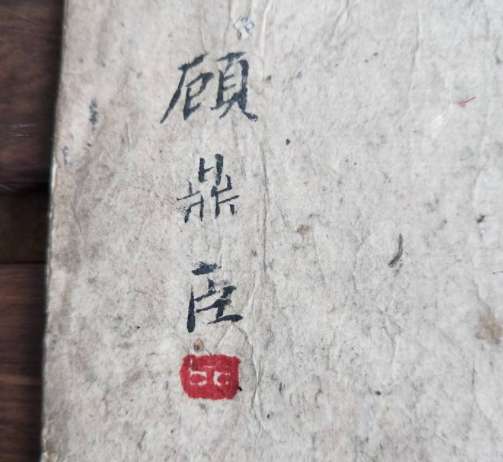 顧鼎臣